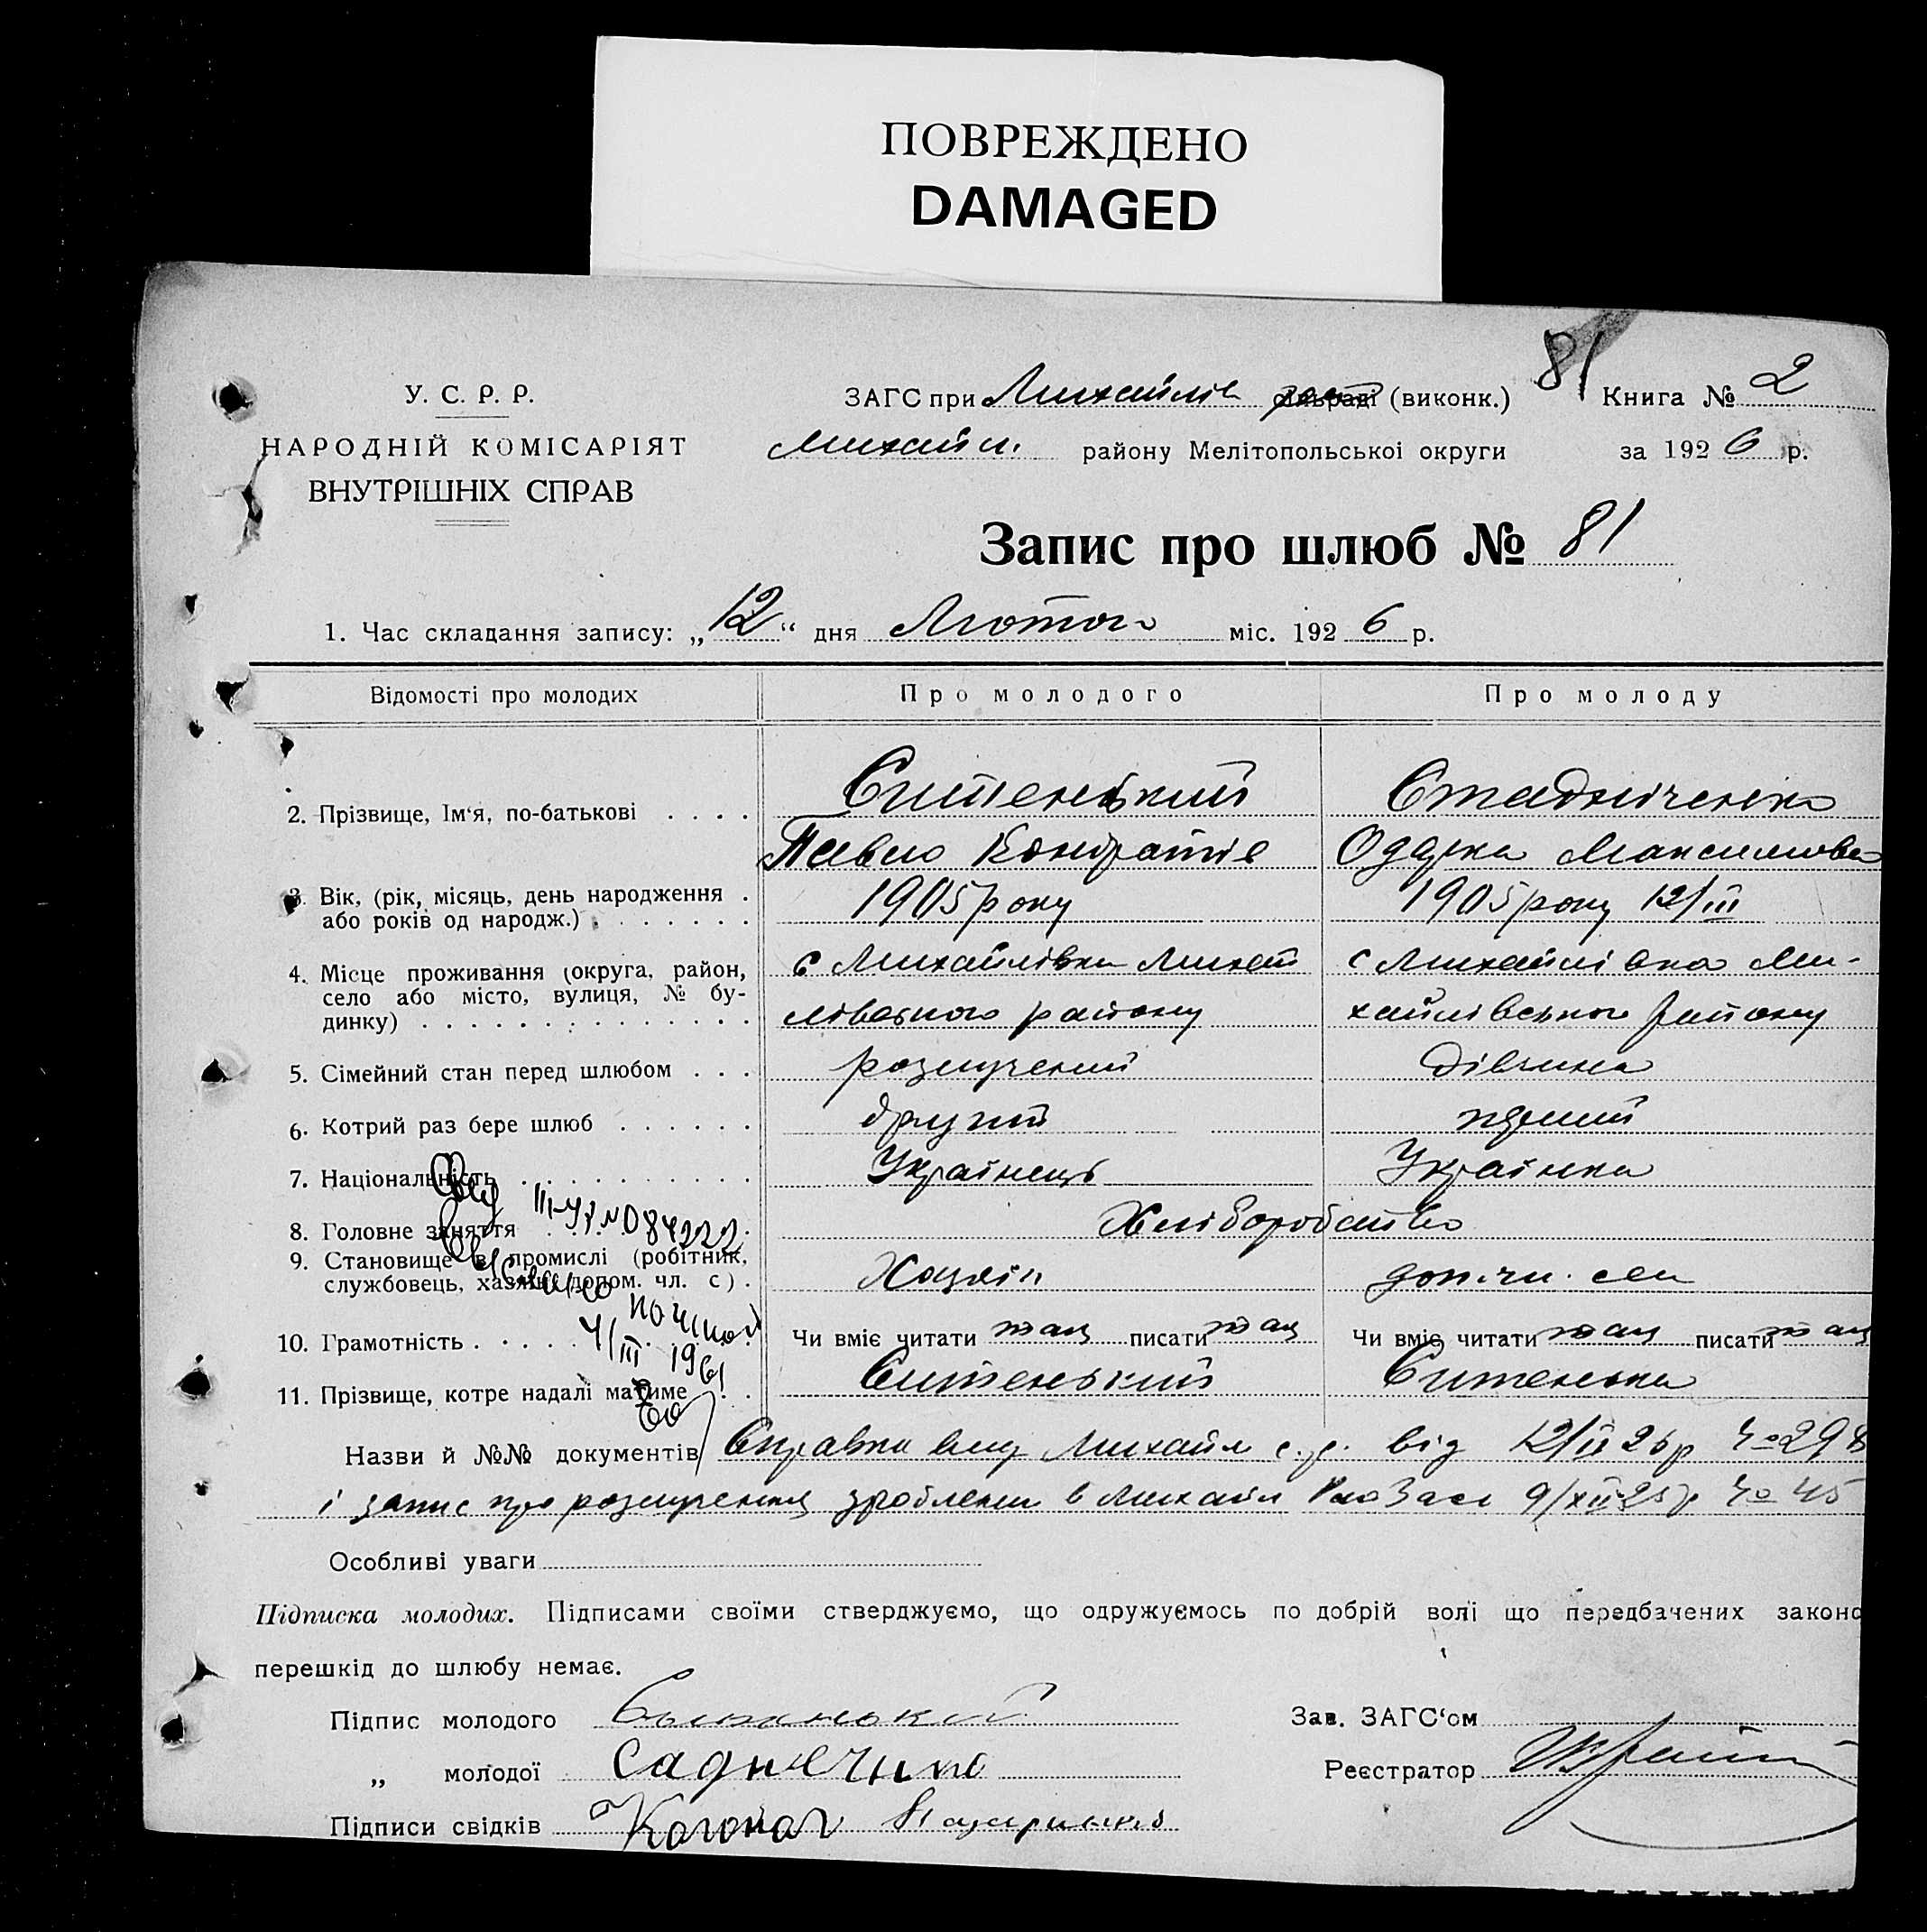 ПОВРЕЖДЕНО
DAMAGED
У. С. Р. Р.
НАРОДНІЙ КОМІСАРІЯТ
ВНУТРІШНІХ СПРАВ
ЗАГС при Михайлів сільраді (виконк.) 81 Книга № 2
Михайл. району Мелітопольськоі округи за 1926 р.
Запис про шлюб № 81
1. Час складання запису: „12“ дня Лютого міс. 1926 р.
Відомості про молодих Про молодого Про молоду
Ситенький Стадніченко
2. Прізвище, Ім‘я, по-батькові . . . .
Павло Кондратів Оддрка Максимова
3. Вік, (рік, місяць, день народження . 1905 року 1905 року 12/III
або років од народж.) . . . . . . .
4. Місце проживання (округа, район, с Михайлівки Михай с Михайлівка Ми-
село або місто, вулиця, № бу-
динку) . . . . . . . . . . . . . . лівського району хайлівського району
5. Сімейний стан перед шлюбом . . . розлучений дівчина
6. Котрий раз бере шлюб . . . . . . другий перший
7. Національність . . . . . . . . . . Українець Українка
III-УР № 084222
8. Головне заняття Хліборобство
9. Становище в промислі (робітник,
службовець, хазяїн, допом. чл. с) . Хазяїн доп. чл. сем
10. Грамотність . . . . Чи вміє читати так писати так Чи вміє читати так писати так
4/III 1961
11. Прізвище, котре надалі матиме . . Ситенький Ситенька
Назви й №№ документів Справка вид Михайл с. р. від 12/II 26 р № 298
і запис про розлучення зроблени в Михайл Рай Загс 9/XII 25 р № 45
Особливі уваги
Підписка молодих. Підписами своїми стверджуємо, що одружуємось по добрій волі що передбачених законо
перешкід до шлюбу немає.
Підпис молодого Ситенький Зав. ЗАГС‘ом
„ молодої Саднечинко Реєстратор
Підписи свідків